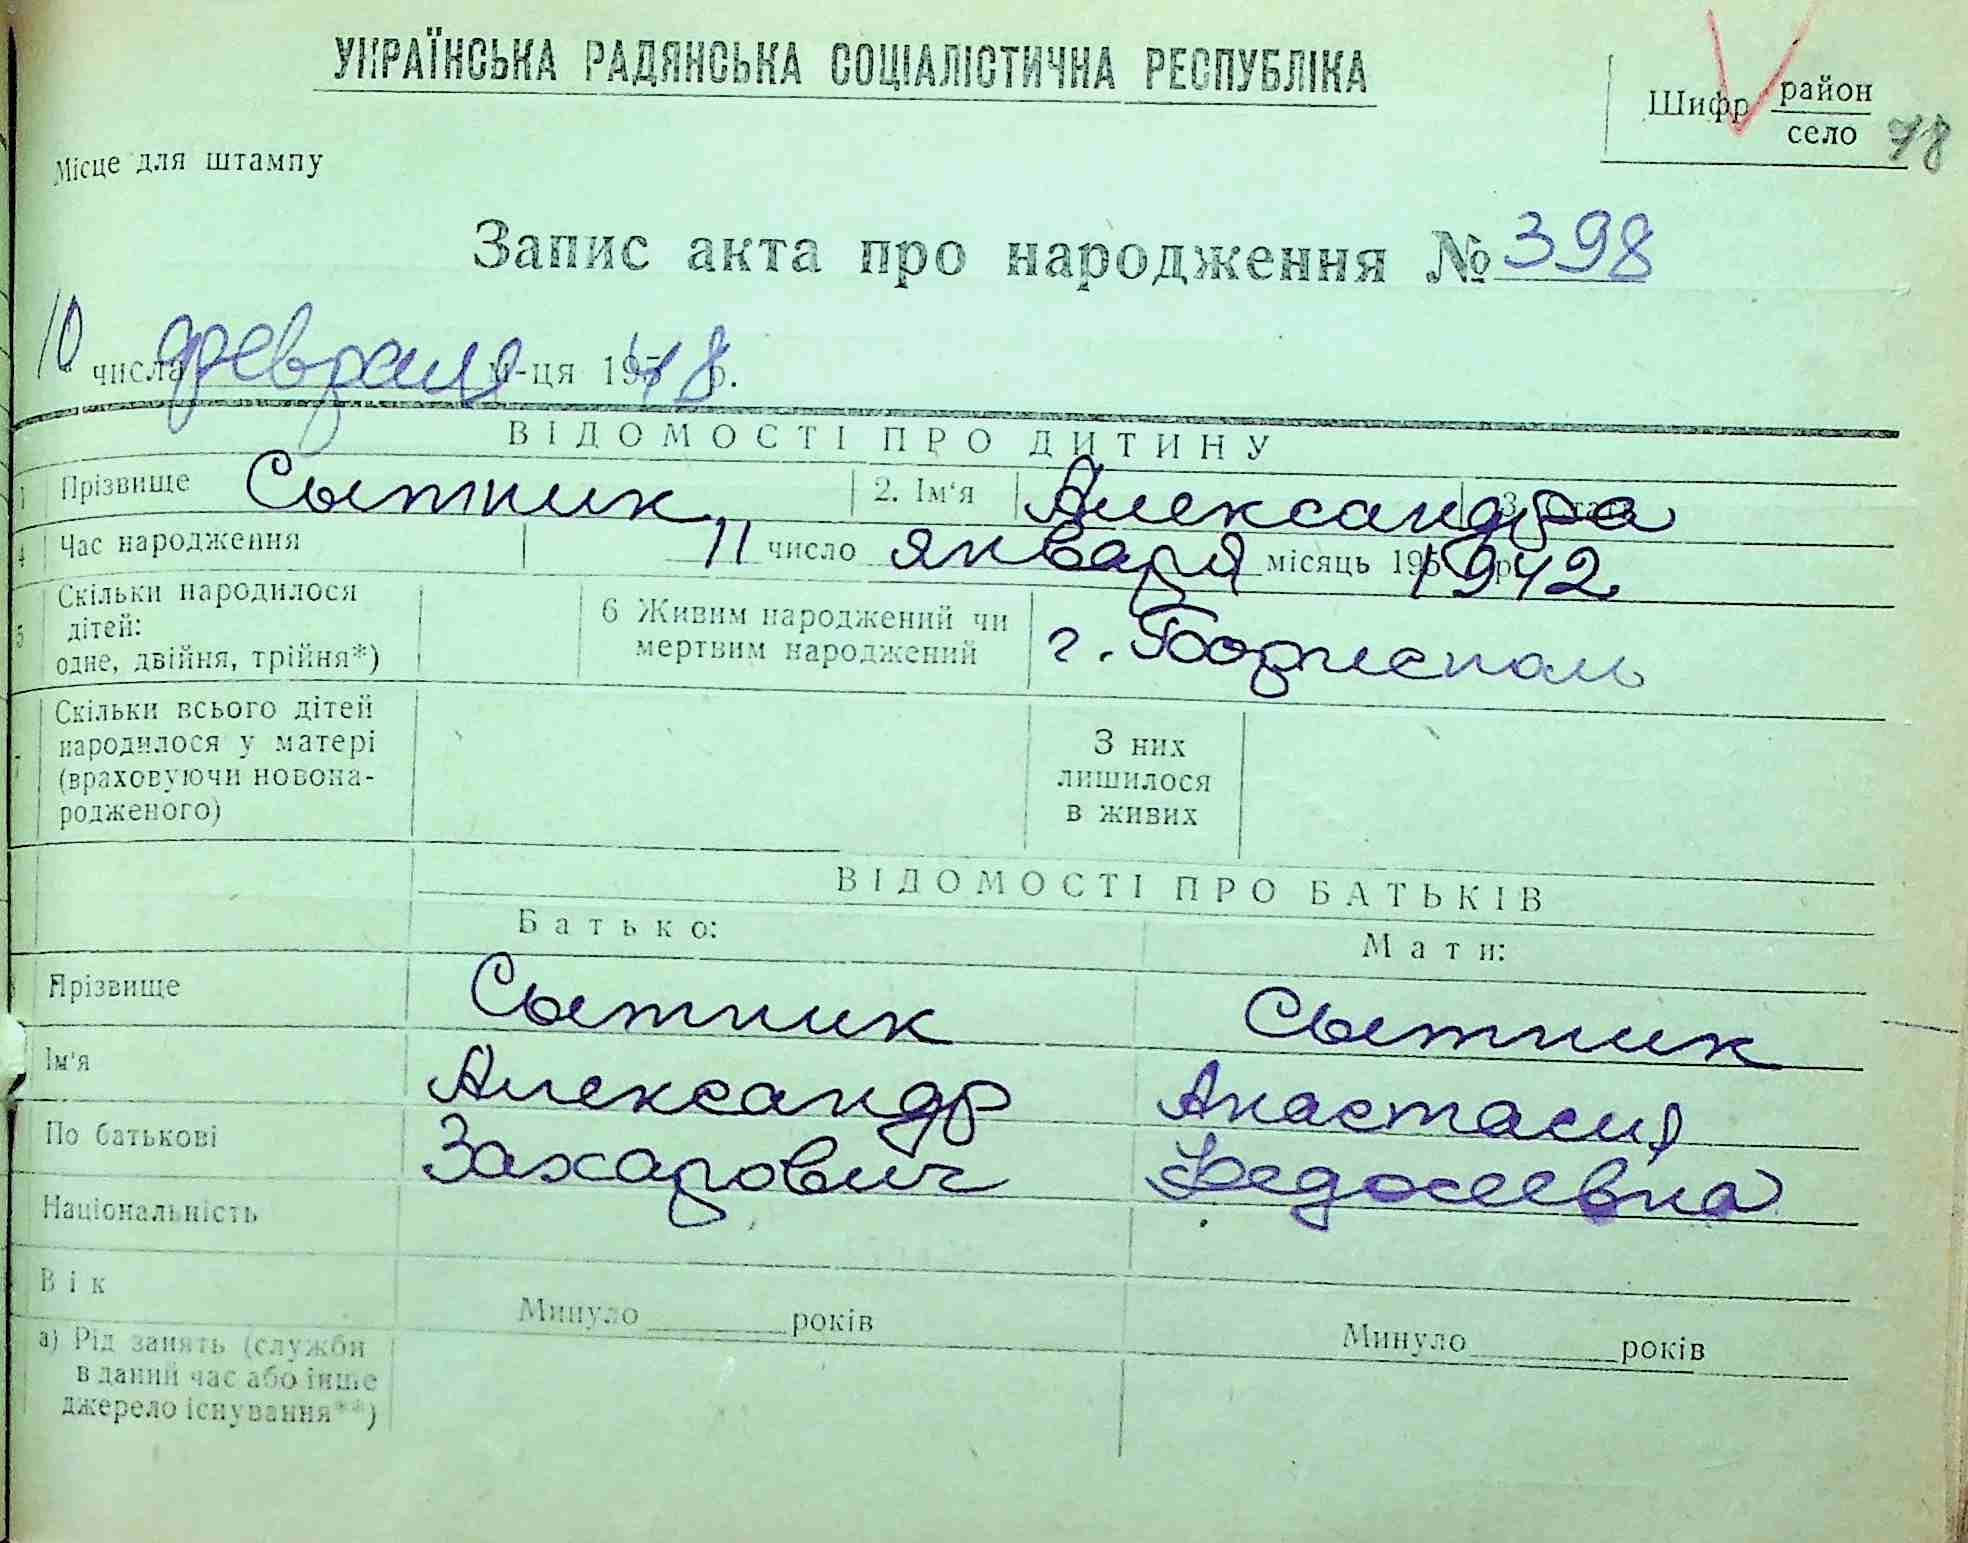 УКРАЇНСЬКА РАДЯНСЬКА СОЦІАЛІСТИЧНА РЕСПУБЛІКА
Шифр район
село 48
Місце для штампу
Запис акта про народження № 398
10 числа февраля м-ця 195 48 р.
ВІДОМОСТІ ПРО ДИТИНУ
1 Прізвище Сытник 2. Ім'я Александра 3.
4 Час народження 11 число января місяць 195 1942 р
5 Скільки народилося дітей: одне, двійня, трійня*) 6 Живим народжений чи мертвим народжений г. Борисполь
7 Скільки всього дітей народилося у матері (враховуючи новонародженого) З них лишилося в живих
ВІДОМОСТІ ПРО БАТЬКІВ
Батько: Мати:
Прізвище Сытник Сытник
Ім'я Александр Анастасия
По батькові Захарович Федосеевна
Національність
Вік Минуло рокiв Минуло років
а) Рід занять (служби в даний час або інше джерело існування**)